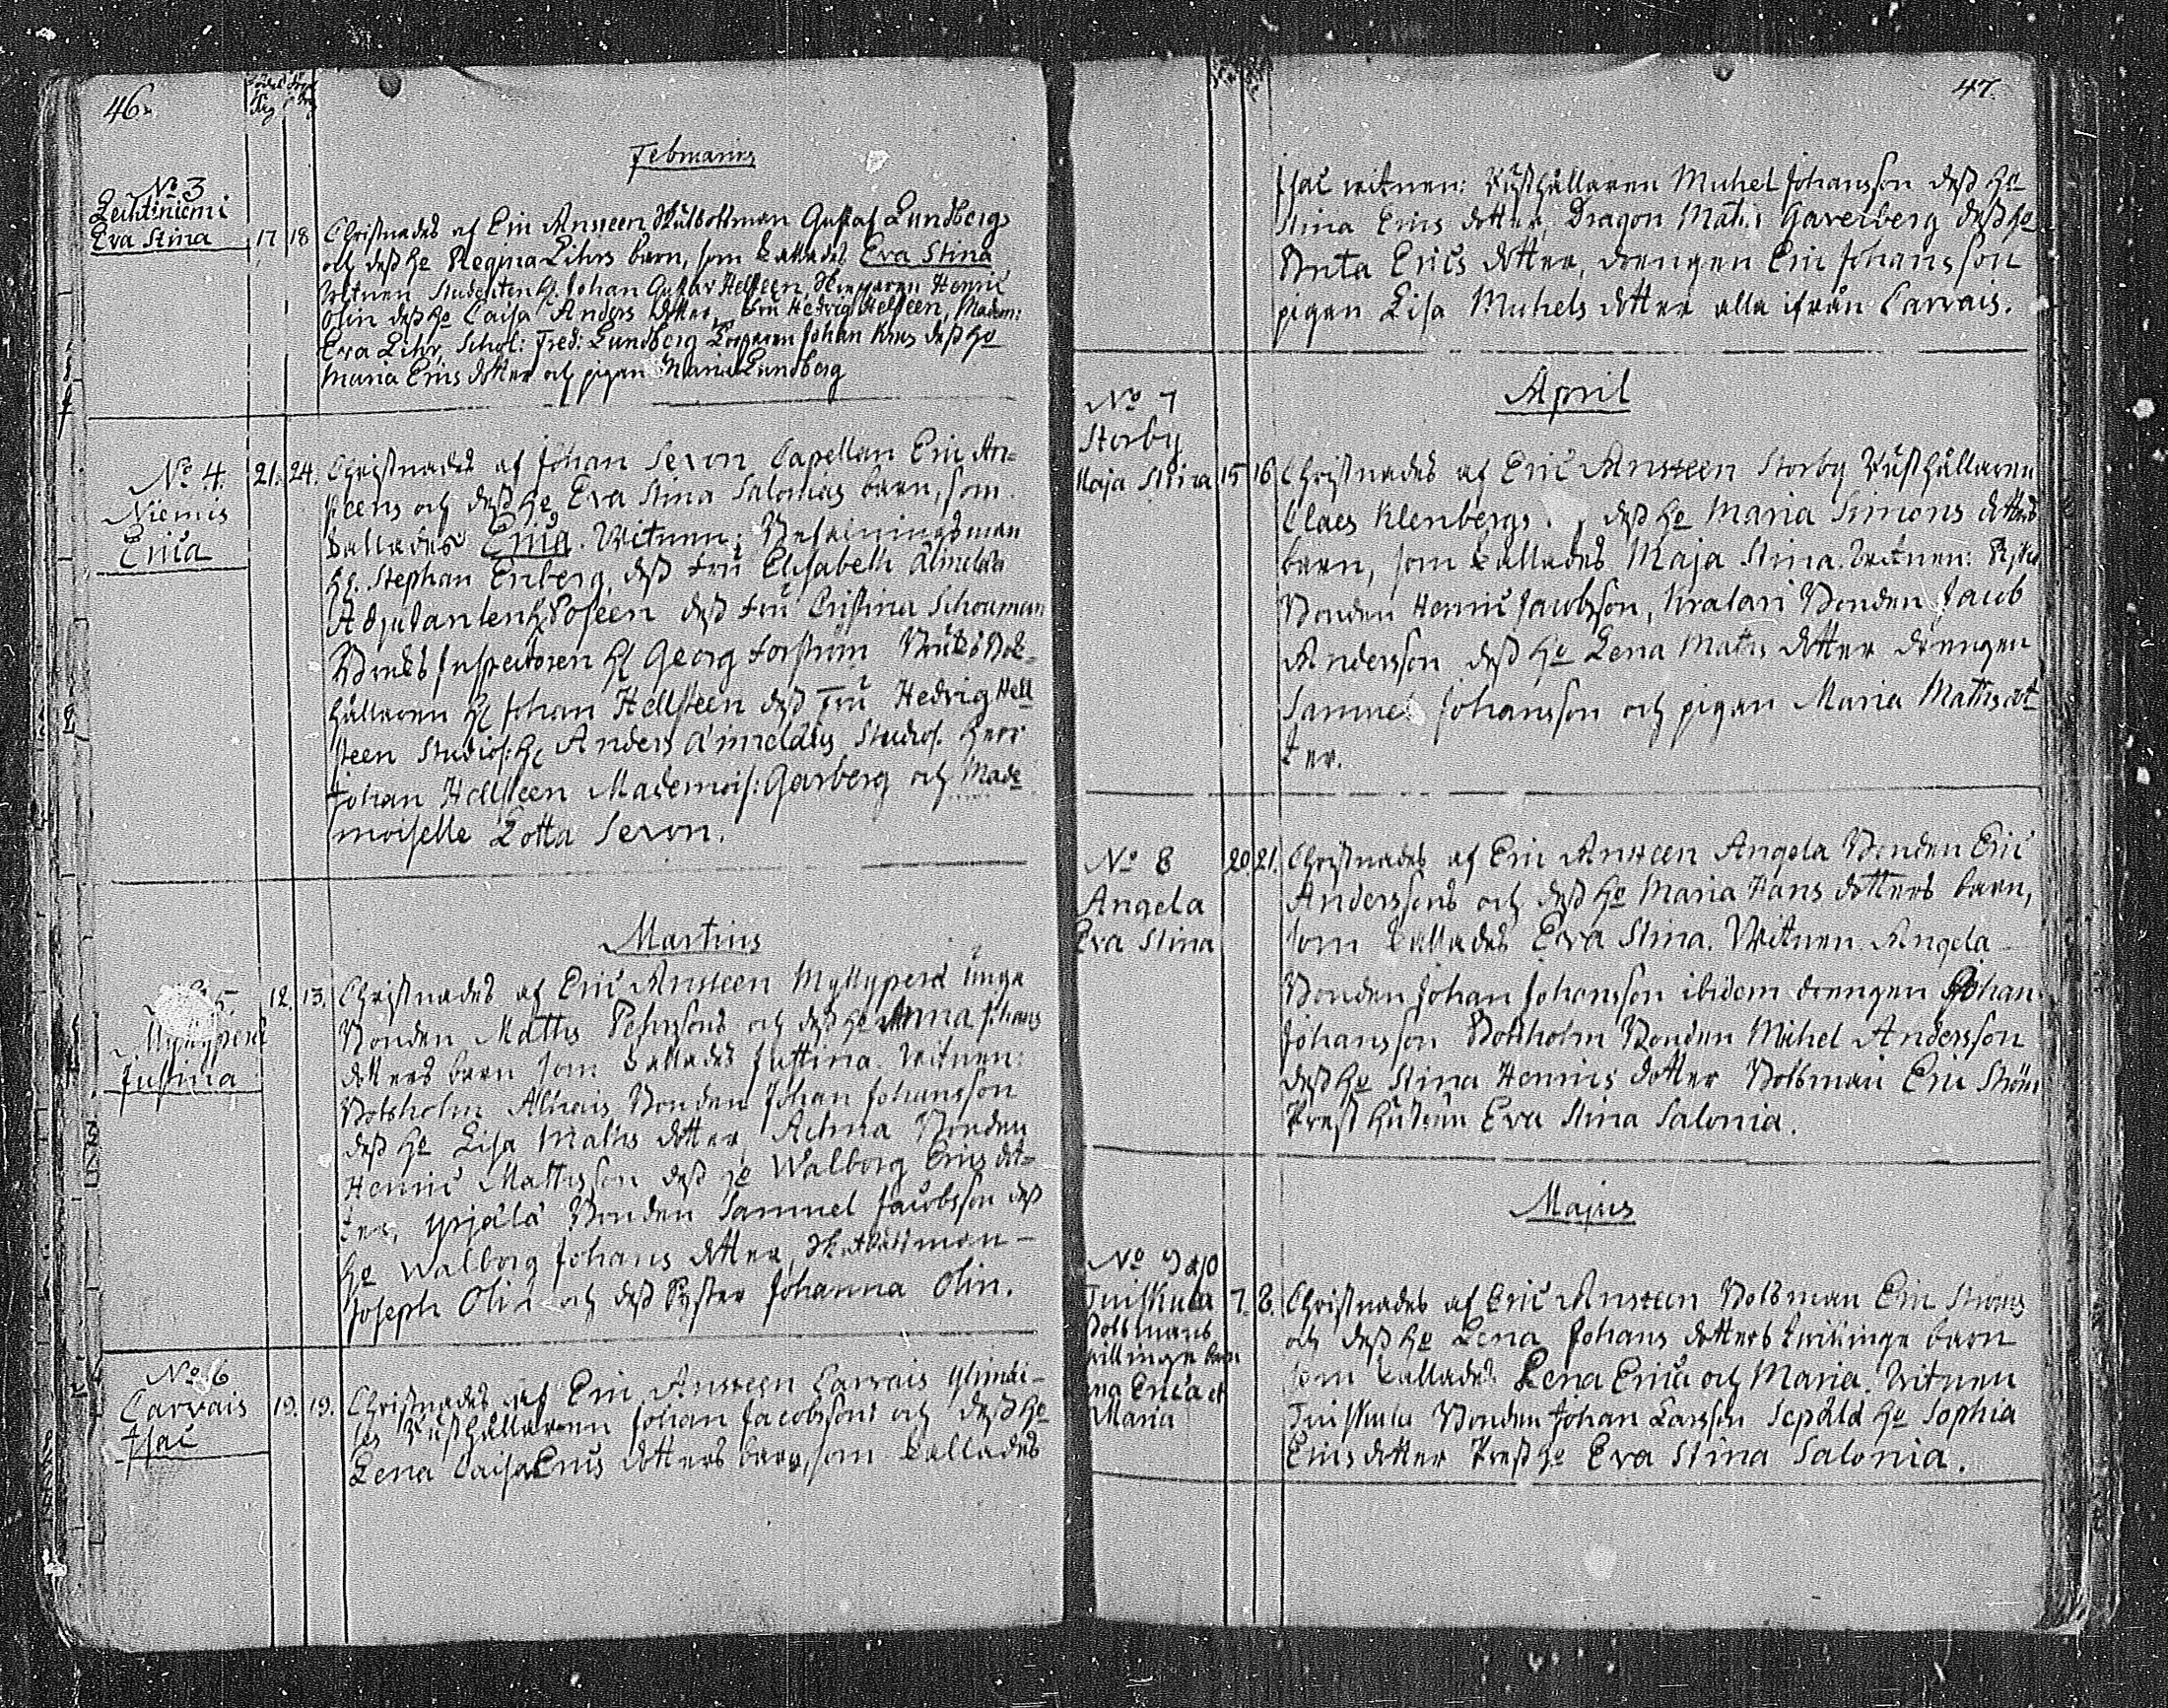 46.
Februarius
No 3
Lechtiniemi
Eva Stina
17 18
Christnades af Eric Ansteen Skulbokman Gustaf Lundbergs
och dess Ho Regina Lihrs barn, som kallades Eva Stina
Witnen Studenten H Johan Gustav Hellsteen, Henric
Olin dess Ho Caisa Anders dotter, Fru Hedvig Hellsteen, Madem:
Eva Lihr, Schol: Fred: Lundberg Johan dess Ho
Maria Erics dotter och pigan Maria Lundberg
No 4.
Niemis
Erica
21. 24.
Christnades af Johan Seron Capellan Eric An=
steens och dess Ho Eva Stina Salonias barn, som
kallades Erica. Witnen: Befalningsman
H. Stephan Enberg, dess Fru Elisabeth Almelda
Adjutanten H Poseen dess Fru Cristina Schouman
Bruks Inspectoren H Georg Forström Bruks Bok=
hållaren H Johan Hellsteen dess Fru Hedvig Hell
steen Studios: H Anders Almelda Studios. Herr
Johan Hellsteen Mademois: Garberg och Made
moiselle Lotta Seron.
Martius
5.
Justina
12. 13.
Christnades af Eric Ansteen Myllyperä unga
Bonden Matts Pehrssons och dess Ho Anna Johans
dotters barn som kallades Justina. Witnen:
Boksholm Alhais Bonden Johan Johansson
dess Ho Lisa Matts dotter, Bonden
Henric Mattsson dess Ho Walborg Erics dot=
ter, Ypjälä Bonden Samuel Jacobsson dess
Ho Walborg Johans dotter,
Joseph Olin och dess Syster Johanna Olin.
No 6
Carvais
Isac
19. 19.
Christnades af Eric Ansteen Carvais
Rusthållaren Johan Jacobssons och dess Ho
Lena Caisa Erics dotters barn, som kallades
47.
Isac witnen: Rusthållaren Michel Johansson dess Ho
Stina Erics dotter, Dragon Matts Gaverberg dess Ho
Brita Erics dotter, drengen Eric Johansson
pigan Lisa Michels dotter alla ifrån Carvais.
April
No 7
Storby
Maja Stina
15 16
Christnades af Eric Ansteen Storby Rusthållaren
Claes Klenbergs dess Ho Maria Simons dotters
barn, som kallades Maja Stina. Witnen:
Bonden Henric Jacobsson, Bonden Jacob
Andersson dess Ho Lena Matts dotter drengen
Samuel Johansson och pigan Maria Matts dot
ter.
No 8
Angela
Eva Stina
20. 21.
Christnades af Eric Ansteen Angela Bonden Eric
Anderssons och dess Ho Maria Hans dotters barn,
som kallades Eva Stina. Witnen Angela
Bonden Johan Johansson ibidem drengen Johan
Johansson Boksholm Bonden Michel Andersson
dess Ho Stina Henrics dotter Boksman Eric Ström
Prest Hustrun Eva Stina Salonia.
Majus
No 9 & 10
Tuiskula
Maria
7. 8.
Christnades af Eric Ansteen Boksman Eric Ströms
och dess Ho Lena Johans dotters twillinge barn
som kallades Lena Erica och Maria. Witnen
Tuiskula Bonden Johan Larsson Sepälä Ho Sophia
Erics dotter Prest Ho Eva Stina Salonia.